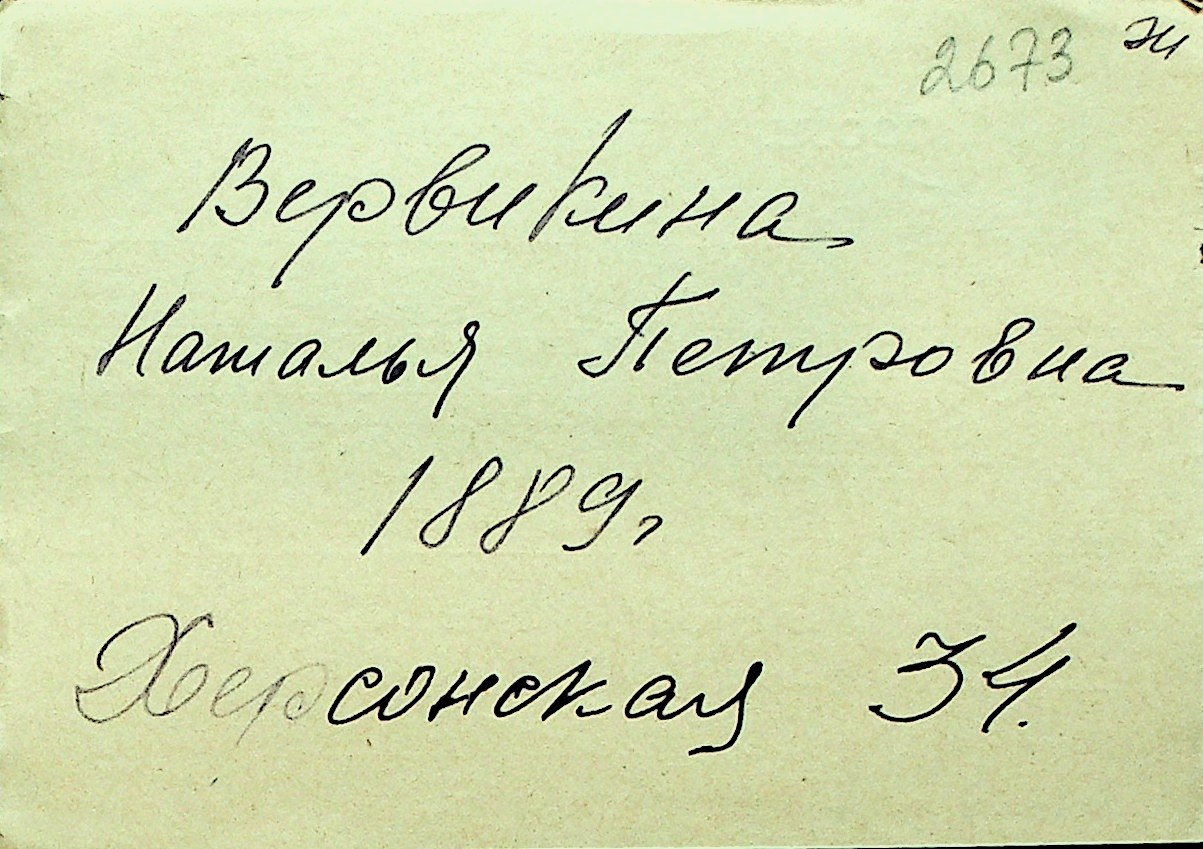 2673 ж
Вервикина
Наталья Петровна
1889г
Херсонская 34.